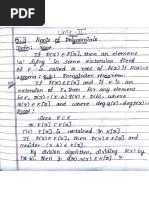 Unit - II
5.3 Roots of Polynomials.
Defn: root.
If P(x) ∈ F[x], then an element
'a' lying in some extension field
of F is called a root of P(x) if P(a)=0
Lemma: 5.3.1 Remainder theorem:
If P(x) ∈ F[x] and if K is an
extension of F, then for any element
b ∈ K, P(x) = (x-b) q(x) + P(b), where
q(x) ∈ K[x] and where deg q(x) = deg P(x)-1
Proof:
since F ⊂ K
F[x] is contained in K[x]
If P(x) ∈ F[x] then P(x) ∈ K[x] and
consider (x-b) ∈ K[x].
By division algorithm, dividing P(x) by